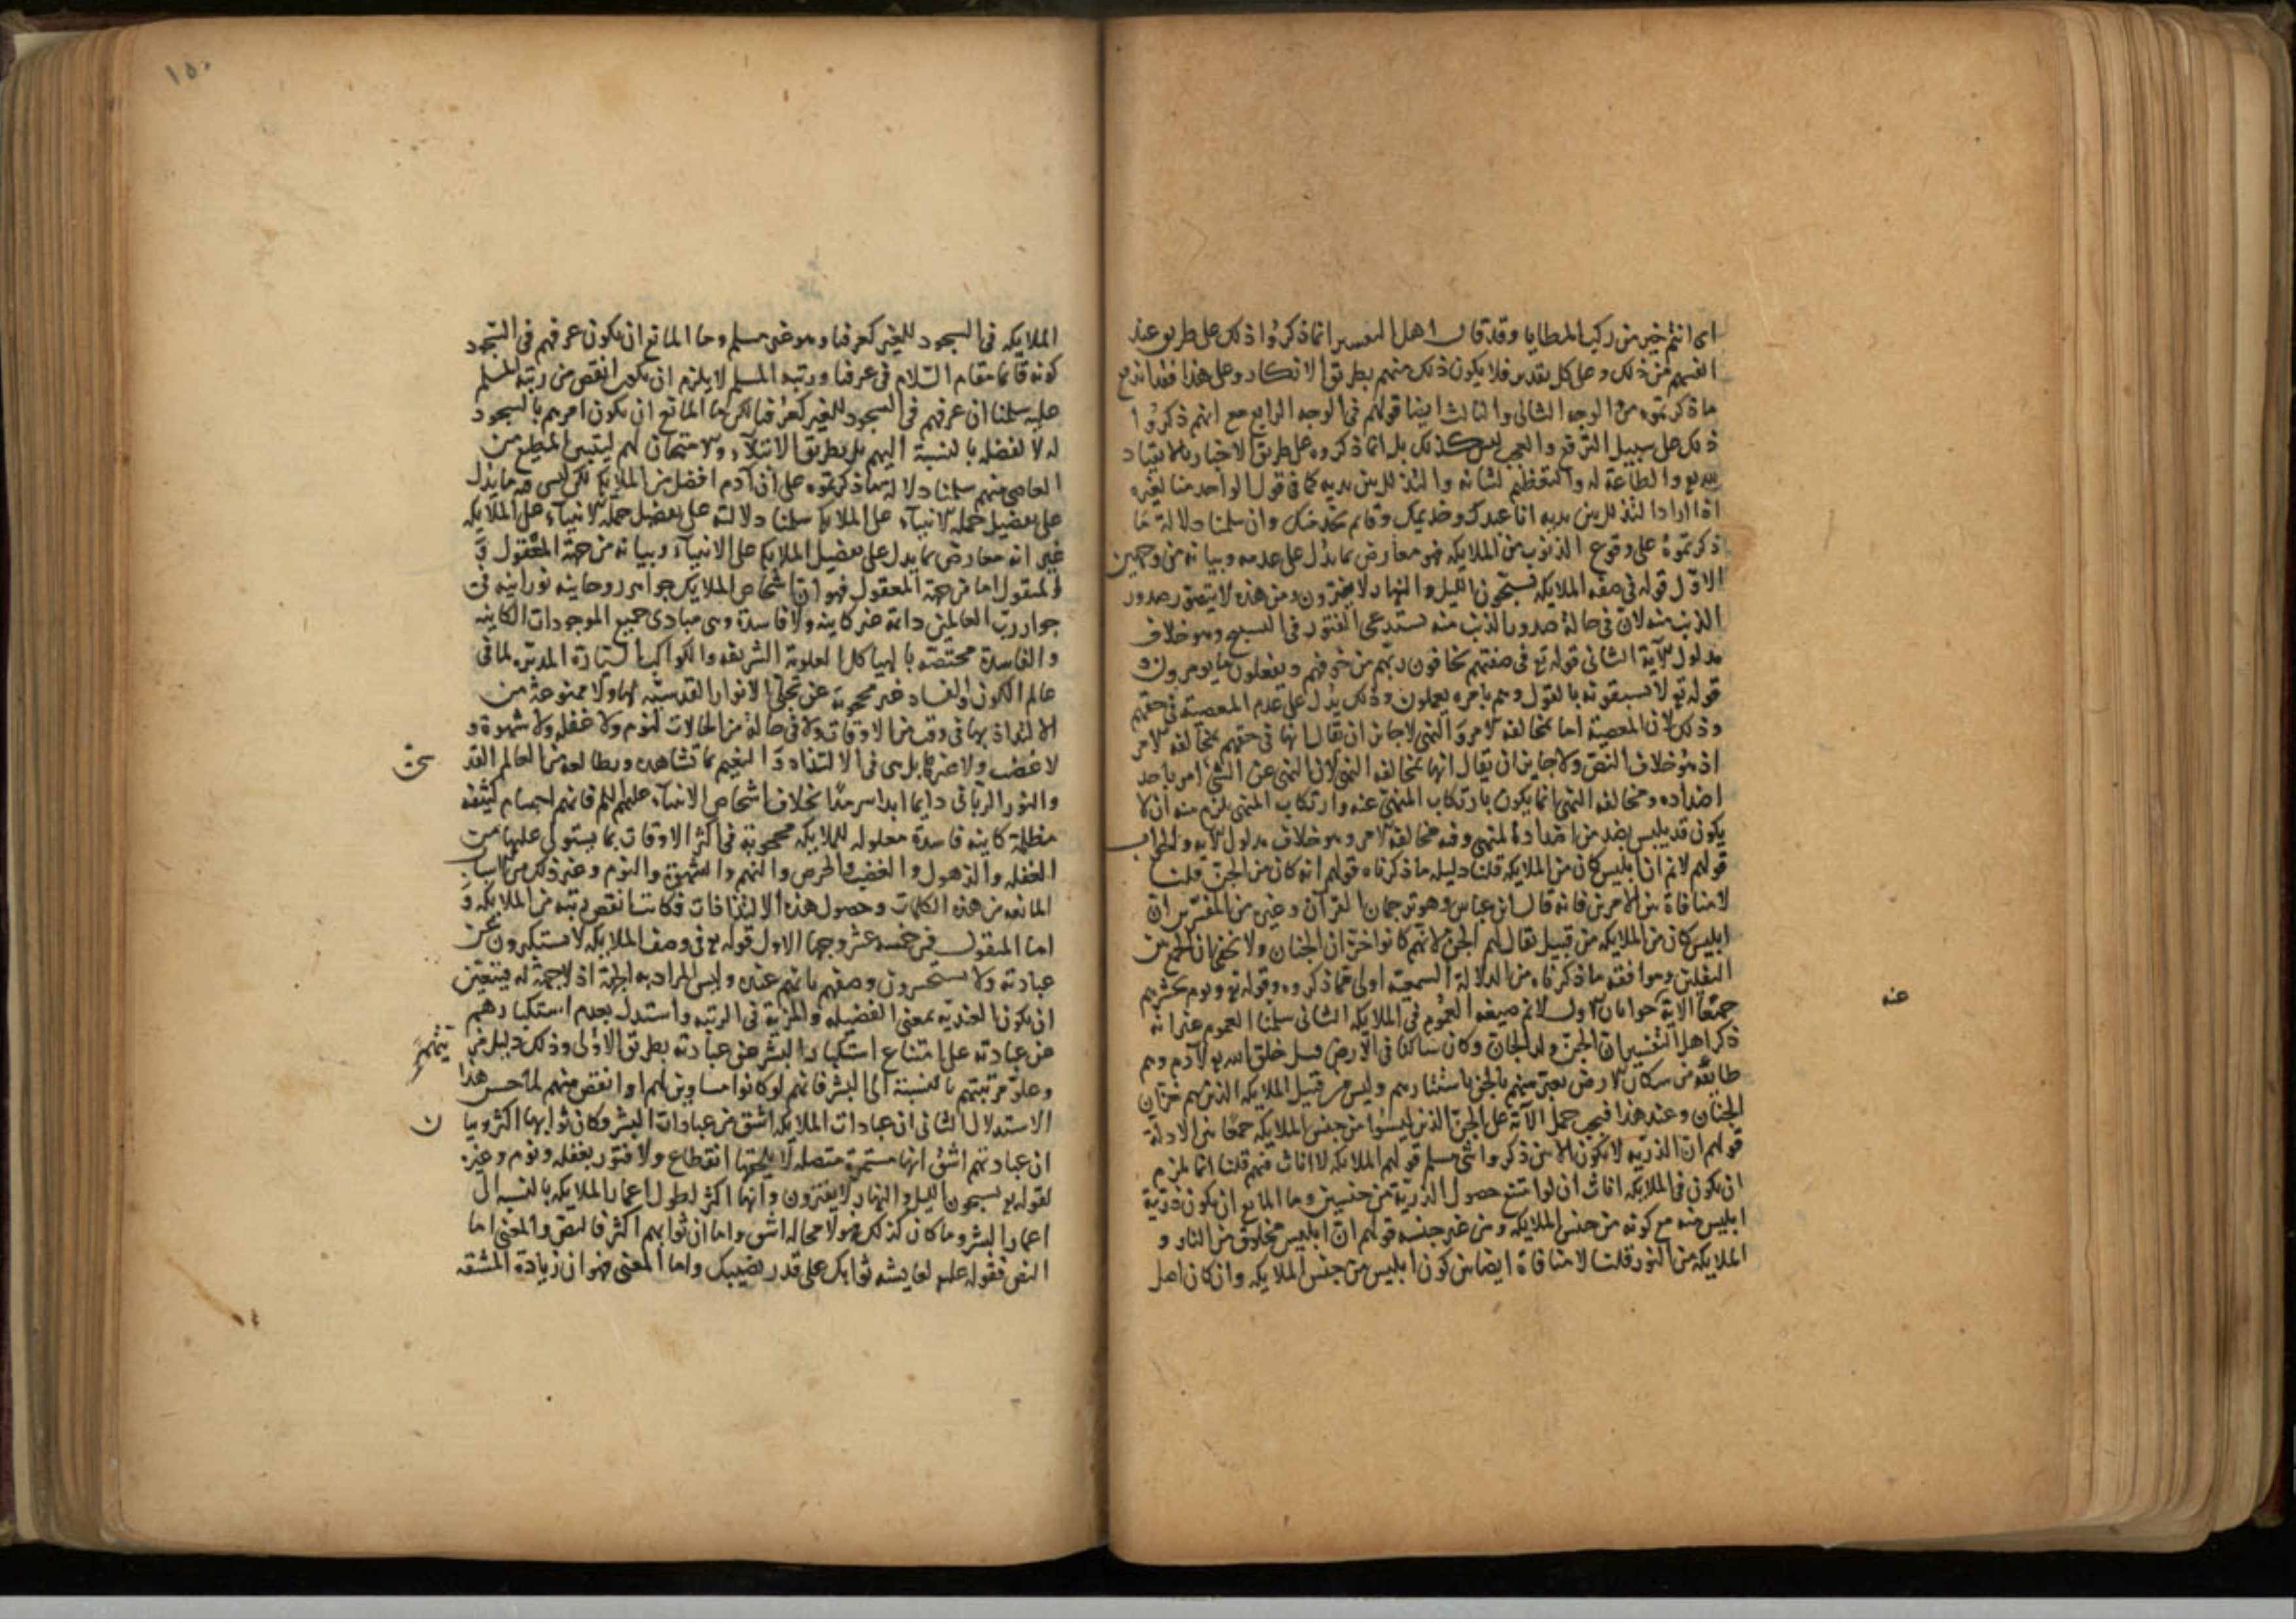 اى انتم خير من ركب المطايا وقد قال اهل التفسير انما ذكروا ذلك على طريق عند
انفسهم من ذلك وعلى كل تقدير فلا يكون ذلك منهم بطريق الانكار وعلى هذا فقد اندفع
ما ذكرتموه من الوجه الثانى والثالث ايضا قولهم فى الوجه الرابع مع انهم ذكروا
ذلك على سبيل الترفع والعجب ليس كذلك بل انما ذكروه على طريق الاخبار بالانقياد
لله تع والطاعة له والتعظيم لشانه والتذلل بين يديه كما فى قول الواحد منا لغيره
اذا اراد التذلل بين يديه انا عبدك وخديمك وقايم بخدمتك وان سلمنا دلالة ما
ذكرتموه على وقوع الذنوب من الملايكه فهو معارض بما يدل على عدمه وبيانه من وجهين
الاول قوله فى صفه الملايكه يسبحون الليل والنهار لا يفترون ومن هذه لا يتصور صدور
الذنب منه لان فى حالة صدور الذنب منه يستدعى الفتور فى التسبيح وهو خلاف
مدلول الاية الثانى قوله تع فى صفتهم يخافون ربهم من فوقهم ويفعلون ما يومرون و
قوله تع لا يسبقونه بالقول وهم بامره يعملون وذلك يدل على عدم المعصية فى حقهم
وذلك لان المعصية اما بمخالفه الامر او النهى لا جايز ان يقال انها فى حقهم بمخالفه الامر
اذ هو خلاف النص ولا جايز ان يقال انها بمخالفه النهى لان النهى عن الشى امر باحد
اضداده ومخالفه النهى انما يكون بارتكاب المنهى عنه وارتكاب المنهى يلزم منه ان لا
يكون قد تلبس بضد من اضداد المنهى وفيه مخالفة الامر وهو خلاف مدلول الايه والجواب
قولهم لا نم ان ابليس كان من الملايكه قلنا دليله ما ذكرناه قولهم انه كان من الجن قلنا
لا منافاة بين الامرين فانه قال ابن عباس وهو ترجمان القرآن وغيره من المفسرين ان
ابليس كان من الملايكه من قبيل يقال لهم الجن لانهم كانوا خزان الجنان ولا يخفى ان الجمع بين
النقلين وموافقه ما ذكرناه من الدلالة السمعية اولى مما ذكروه وقوله تع ويوم يحشرهم
جميعا الاية جوابان الاول لا نم صيغه العموم فى الملايكه الثانى سلمنا العموم غير انه
ذكر اهل التفسير ان الجن ولد الجان وكان ساكنا فى الارض قبل خلق الله تع لآدم وهم
طايفه من سكان الارض يعبر عنهم بالجن باستتارهم وليس من قبيل الملايكه الذين هم خزان
الجنان وعند هذا فيجب حمل الآية على الجن الذين ليسوا من جنس الملايكه جمعا بين الادلة
قولهم ان الذريه لا تكون الا من ذكر وانثى مسلم قولهم الملايكه لا اناث فيهم قلنا انما يلزم
ان يكون فى الملايكه اناث ان لو امتنع حصول الذرية من جنسين وما المانع ان يكون ذرية
ابليس منه مع كونه من جنس الملايكه ومن غير جنسه قولهم ان ابليس مخلوق من النار و
الملايكه من النور قلنا لا منافاة ايضا بين كون ابليس من جنس الملايكه وان كان اصل
عنه
١٥٠
الملايكه فى السجود للغير كعرفنا وهو غير مسلم وما المانع ان يكون عرفهم فى السجود
كونه قايما مقام السلام فى عرفنا ورتبه المسلم لا يلزم ان يكون انقص من رتبه المسلم
عليه سلمنا ان عرفهم فى السجود للغير كعرفنا لكن ما المانع ان يكون امرهم بالسجود
له لا لفضله بالنسبة اليهم بل بطريق الابتلاء والامتحان لهم ليتبين المطيع من
العاصى منهم سلمنا دلالة ما ذكرتموه على ان آدم افضل من الملايكه لكن ليس فيه ما يدل
على تفضيل جمله الانبياء على الملايكه سلمنا دلالته على تفضيل جمله الانبياء على الملايكه
غير انه معارض بما يدل على تفضيل الملايكه على الانبياء وبيانه من جهة المعقول و
المنقول اما من جهة المعقول فهو ان اشخاص الملايكه جواهر روحانيه نورانيه فى
جوار رب العالمين دائمة غير كاينه ولا فاسدة وهى مبادى جميع الموجودات الكاينه
والفاسدة مختصه بالهياكل العلوية الشريفه والكواكب السيارة المدبره لما فى
عالم الكون والفساد غير محجوبة عن تجلى الانوار القدسيه لها ولا ممنوعة من
الالتذاذ بها فى وقت من الاوقات ولا فى حالة من الحالات لنوم ولا غفله ولا شهوة و
لا غضب ولا غيره بل هى فى الالتذاذ والنعيم بما تشاهده وتطالعه من العالم القد
والنور الربانى دايما ابدا سرمدا بخلاف اشخاص الانبياء عليهم السلم فانهم اجسام كثيفه
مظلمة كاينه فاسدة معلوله للملايكه محجوبة فى اكثر الاوقات بما يستولى عليها من
الغفله والذهول والغضب والحرص والنهم والشهوة والنوم وغير ذلك من الاسباب
المانعه من هذه الكمالات وحصول هذه الالتذاذات فكانت انقص رتبه من الملايكه و
اما المنقول فمن خمسه عشر وجها الاول قوله تع فى وصف الملايكه لا يستكبرون عن
عبادته ولا يستحسرون وصفهم بانهم عنده وليس المراد به الجهة اذ لا جهة له فيتعين
ان يكون العنديه بمعنى الفضيله والمزية فى الرتبه واستدل بعدم استكبارهم
عن عبادته على امتناع استكبار البشر عن عبادته بطريق الاولى وذلك دليل
وعلو مرتبتهم بالنسبة الى البشر فانهم لو كانوا مساوين لهم او انقص منهم لما حسن هذا
الاستدلال الثانى ان عبادات الملايكه اشق من عبادات البشر وكان ثوابها اكثر وبيا
ان عبادتهم اشق انها مستمرة متصله لا يلحقها انقطاع ولا فتور بغفله ونوم وغيره
لقوله تع يسبحون الليل والنهار لا يفترون وانها اكثر لطول اعمار الملايكه بالنسبه الى
اعمار البشر وما كان كذلك فهو لا محاله اشق واما ان ثوابهم اكثر فالنص والمعنى اما
النص فقوله عليه لعايشه ثوابك على قدر نصيبك واما المعنى فهو ان زيادة المشقه
ن